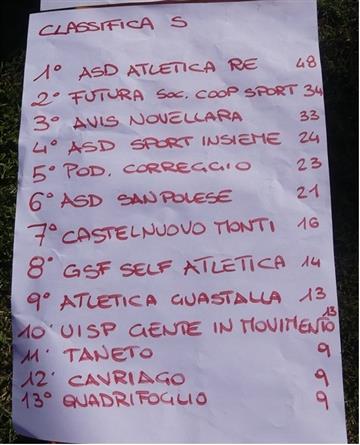 CLASSIFICA S
1° ASD ATLETICA RE 48
2° FUTURA SOC. COOP SPORT 34
3° AVIS NOVELLARA 33
4° ASD SPORT INSIEME 24
5° POD. CORREGGIO 23
6° ASD SANPOLESE 21
7° CASTELNUOVO MONTI 16
8° GSF SELF ATLETICA 14
9° ATLETICA GUASTALLA 13
10° UISP GENTE IN MOVIMENTO 13
11° TANETO 9
12° CAVRIAGO 9
13° QUADRIFOGLIO 9